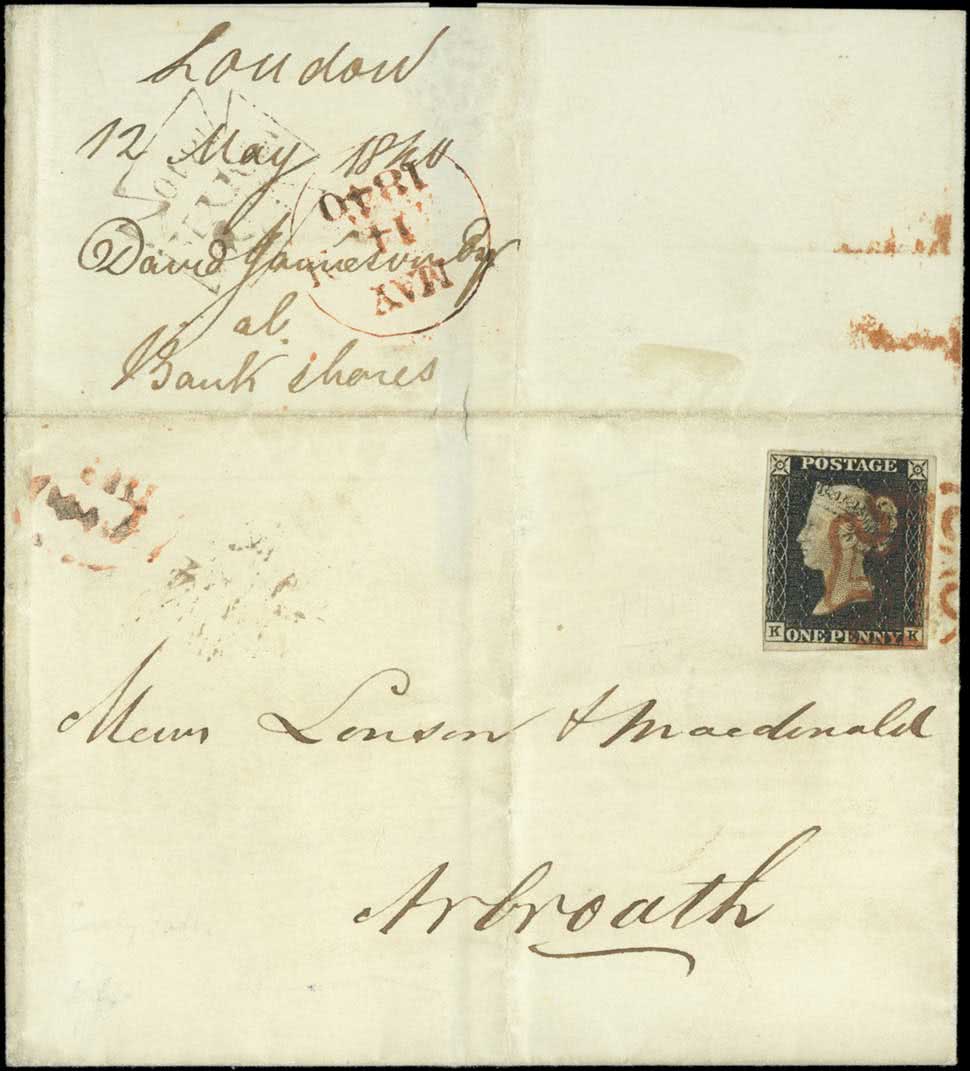 London
12 May 1840
David Jameson Esqr
1840
14
MAY
at
Bank shares
POSTAGE
K ONE PENNY K
Messrs Lonson & Macdonald
Arbroath